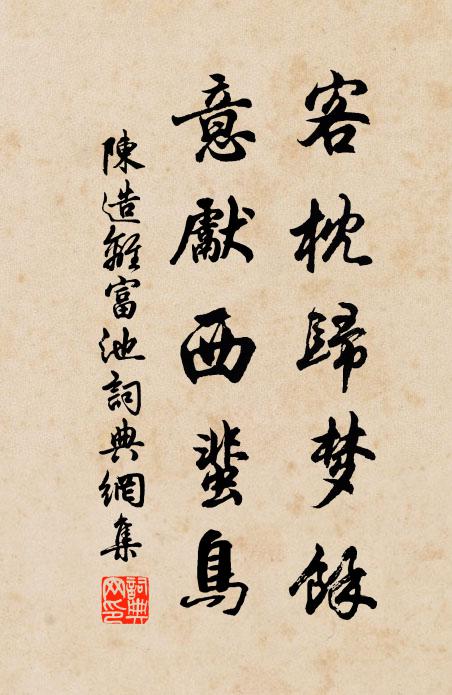 客枕歸梦餘
意獻西蜚鳥
陳造離富池詞典網集
詞典网印